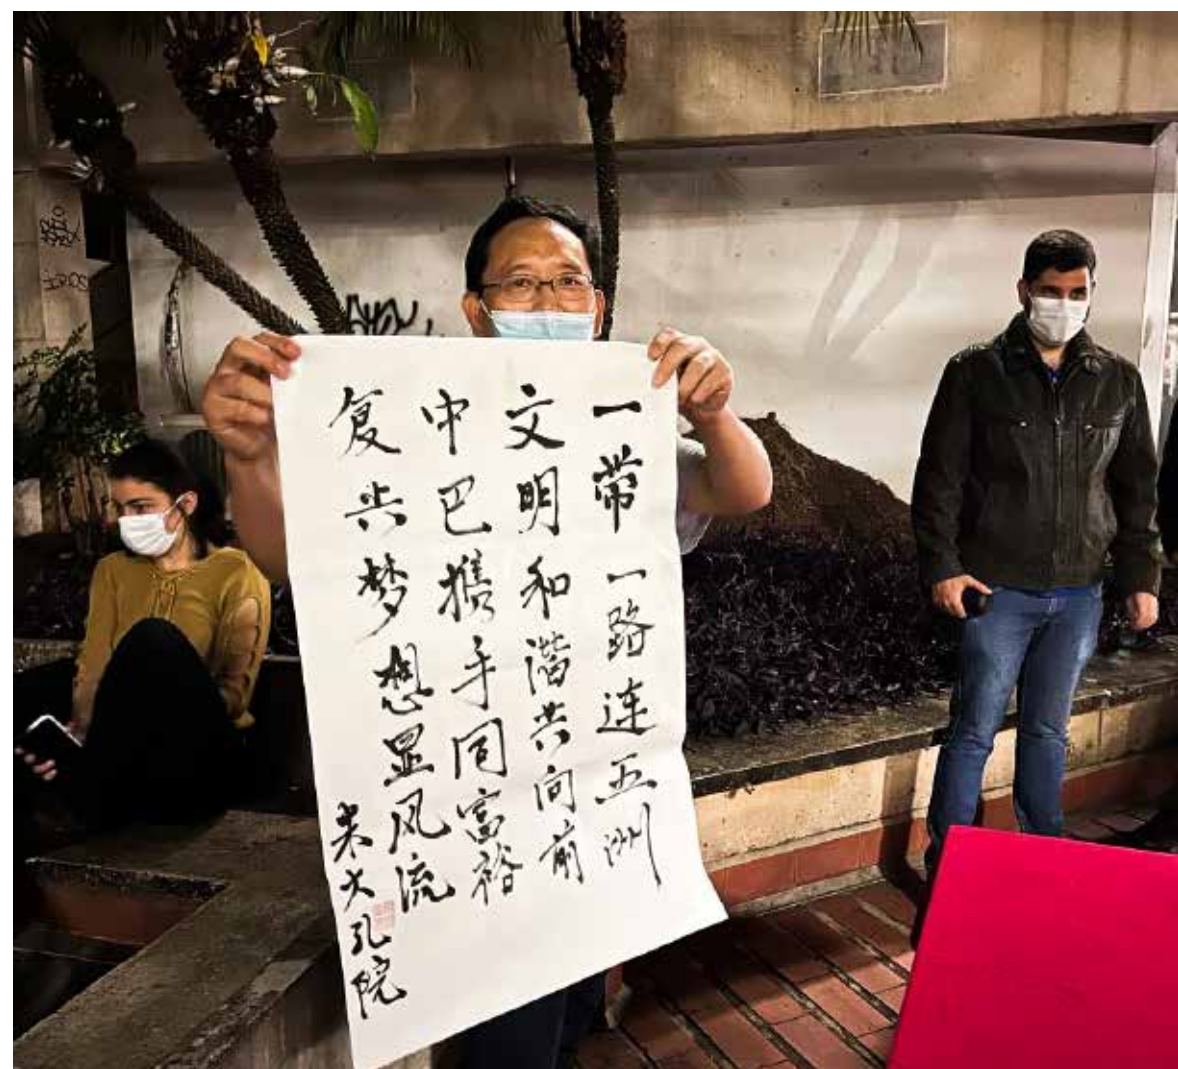 一带一路连五洲
文明和谐共向前
中巴携手同富裕
复兴梦想显风流
米大孔院